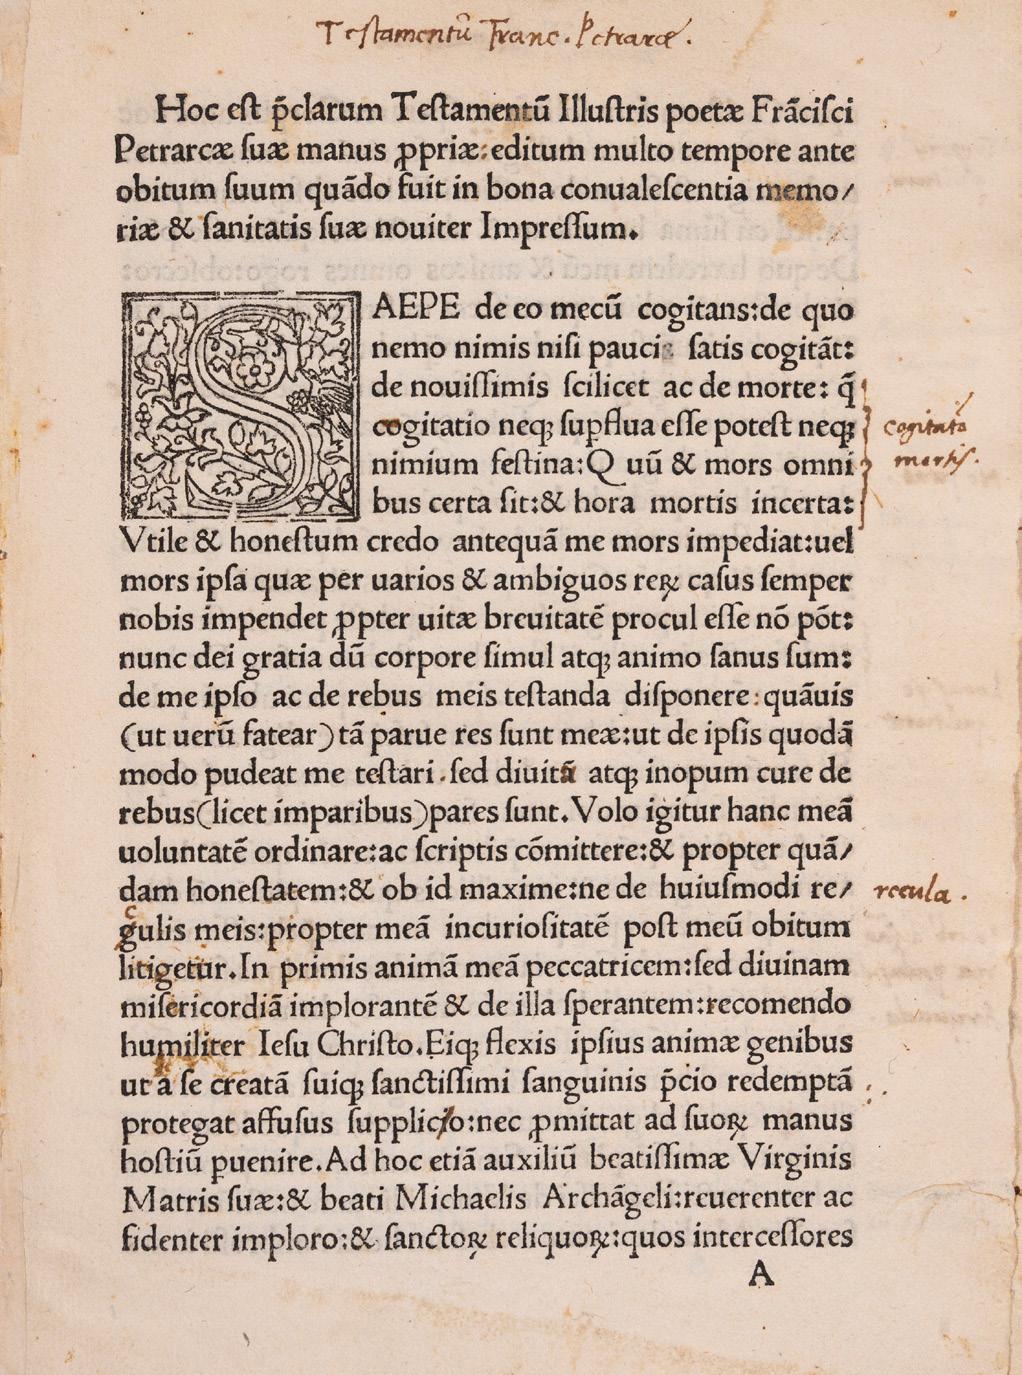 Testamentū Franc. Petrarcæ.
Hoc eſt p̄clarum Teſtamentū Illuſtris poetæ Frāciſci
Petrarcæ ſuæ manus ꝓpriæ: editum multo tempore ante
obitum ſuum quādo fuit in bona conualeſcentia memo/
riæ & ſanitatis ſuæ nouiter Impreſſum.
SAEPE de eo mecū cogitans: de quo
nemo nimis niſi pauci ſatis cogitāt:
de nouiſſimis ſcilicet ac de morte: q̄
cogitatio neqꝫ ſuꝑflua eſſe poteſt neqꝫ
nimium feſtina: Q uū & mors omni
bus certa ſit: & hora mortis incerta:
cogitatō
mortis.
Vtile & honeſtum credo antequā me mors impediat: uel
mors ipſa quæ per uarios & ambiguos reꝝ caſus ſemper
nobis impendet ꝓpter uitæ breuitatē procul eſſe nō pōt:
nunc dei gratia dū corpore ſimul atqꝫ animo ſanus ſum:
de me ipſo ac de rebus meis teſtanda diſponere: quāuis
(ut uerū fatear) tā parue res ſunt meæ: ut de ipſis quodā
modo pudeat me teſtari. ſed diuitū atqꝫ inopum cure de
rebus (licet imparibus) pares ſunt. Volo igitur hanc meā
uoluntatē ordinare: ac ſcriptis cōmittere: & propter quā/
dam honeſtatem: & ob id maxime: ne de huiuſmodi re/
recula.
c
gulis meis: propter meā incurioſitatē poſt meū obitum
litigetur. In primis animā meā peccatricem: ſed diuinam
miſericordiā implorantē & de illa ſperantem: recomendo
humiliter Ieſu Chriſto. Eiqꝫ flexis ipſius animæ genibus
ut a ſe creatā ſuiqꝫ ſanctiſſimi ſanguinis p̄cio redemptā
protegat affuſus ſupplicio: nec ꝑmittat ad ſuoꝝ manus
hoſtiū ꝑuenire. Ad hoc etiā auxiliū beatiſſimæ Virginis
Matris ſuæ: & beati Michaelis Archāgeli: reuerenter ac
fidenter imploro: & ſanctoꝝ reliquoꝝ: quos interceſſores
A